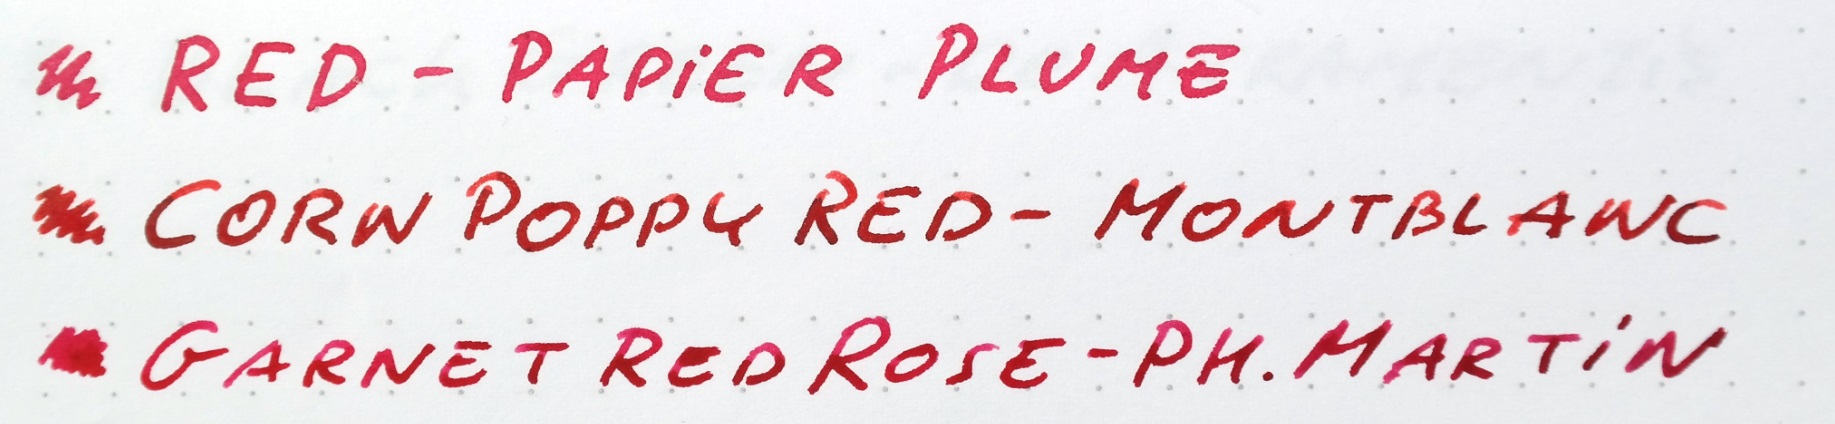 RED - PAPiER PLUME
CORN POPPY RED - MONTBLANC
GARNET RED ROSE - PH. MARTiN